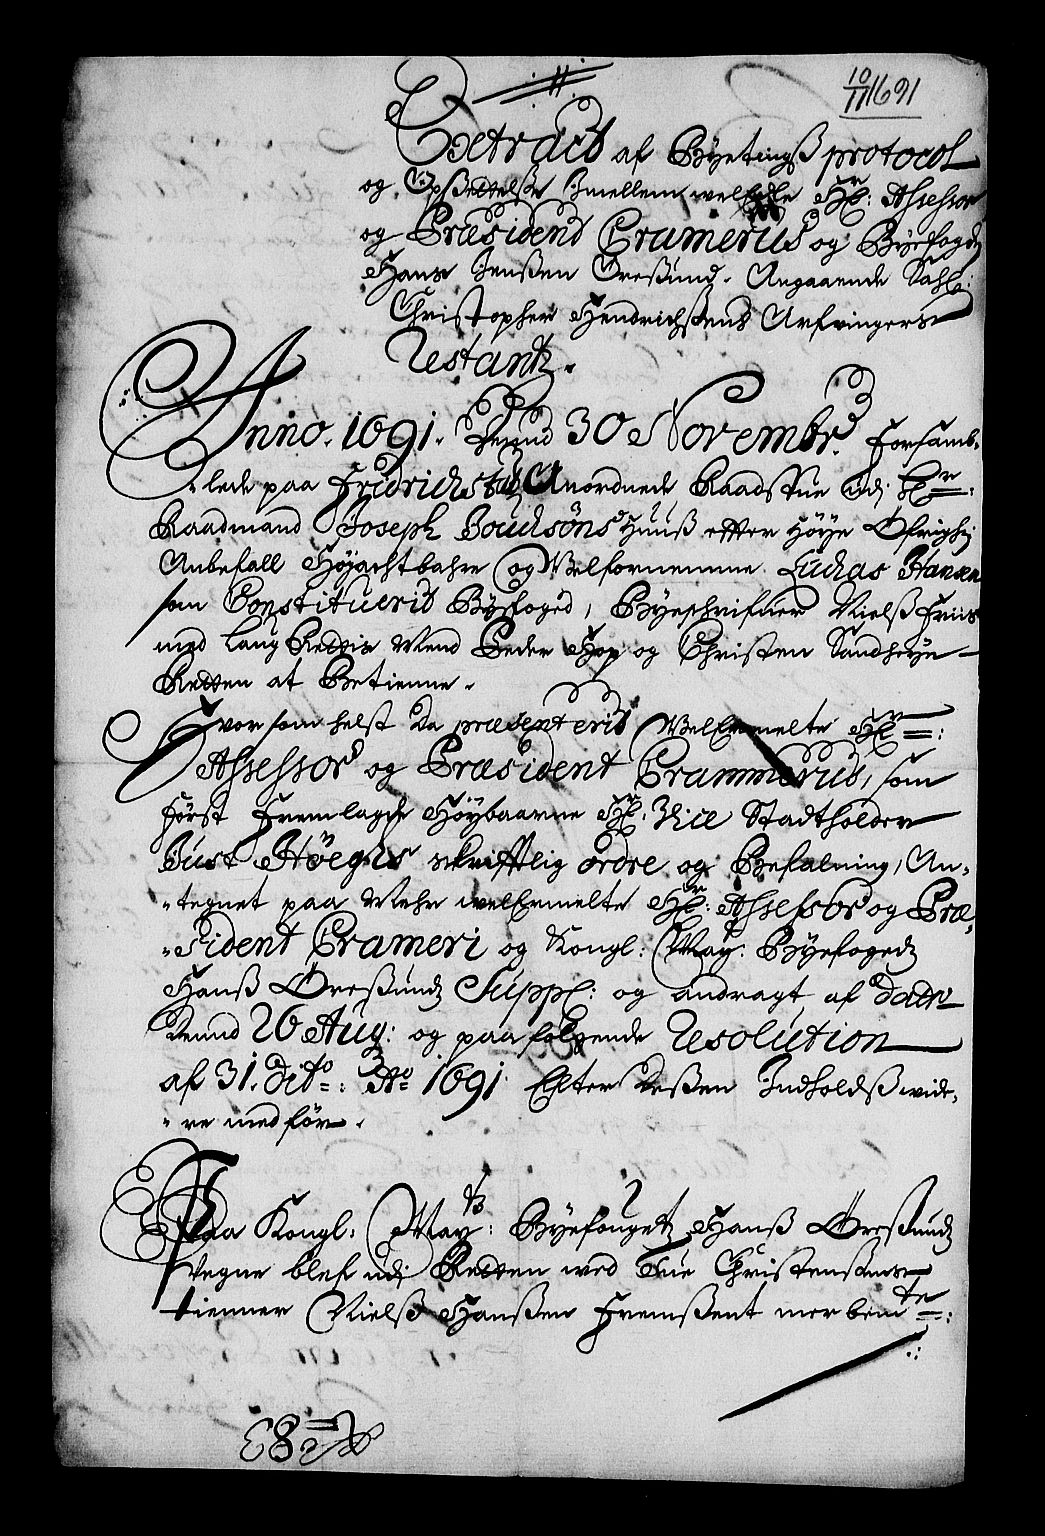 10/11 1691
Extract af Byetingß protocol
og Opßettelße Imellem welEdle Hr: Assessor
og Præsidend Cramerus og Byefogden
Hans Jenßen Öreßund. Angaaende Sahl:
Christopher Hendrichßens Arfvingers
Restantz.
Anno. 1691. Dend 30 Novembr. Forsamb-
lede paa Fridrichstad Anordnede Raadstue udj Hr:
Raadmand Joseph Jouchsöns Huuß effter Høye Öfrighed
Anbefall Høyachtbahre og Welfornemme Luchas Hansen
som Constituerid Byefoged, Byeschrifuer Nielß Friis
med laug Rettis Mend Peder Hop og Christen Sandherye
Retten at Betienne.
Hvor som helst da præsenterid WelErmelte Hr:
Assessor og Præsident Crammerus, som
først Fremlagde Høybaarne Hr. Vice Stadtholder
Just Høegs skrifftlig ordre og Befalning, An-
tegnet paa Mehr welErmelte Hr: Assessor og Præ-
sident Crameri og Kongl: May: Byefogedz
Hanß Öreßundz Suppl: og andragt af dato
Dend 26 Aug: og paafølgende Resolution
af 31. dito: Ao 1691 Effter deßen Indholdß wide-
re medför.
Paa Kongl: Maytz: Byefougetz Hanß Öreßundz
Vegne blef udj Retten wed Tue Christensens
tienner Nielß Hanßen Fremßent merbemte: